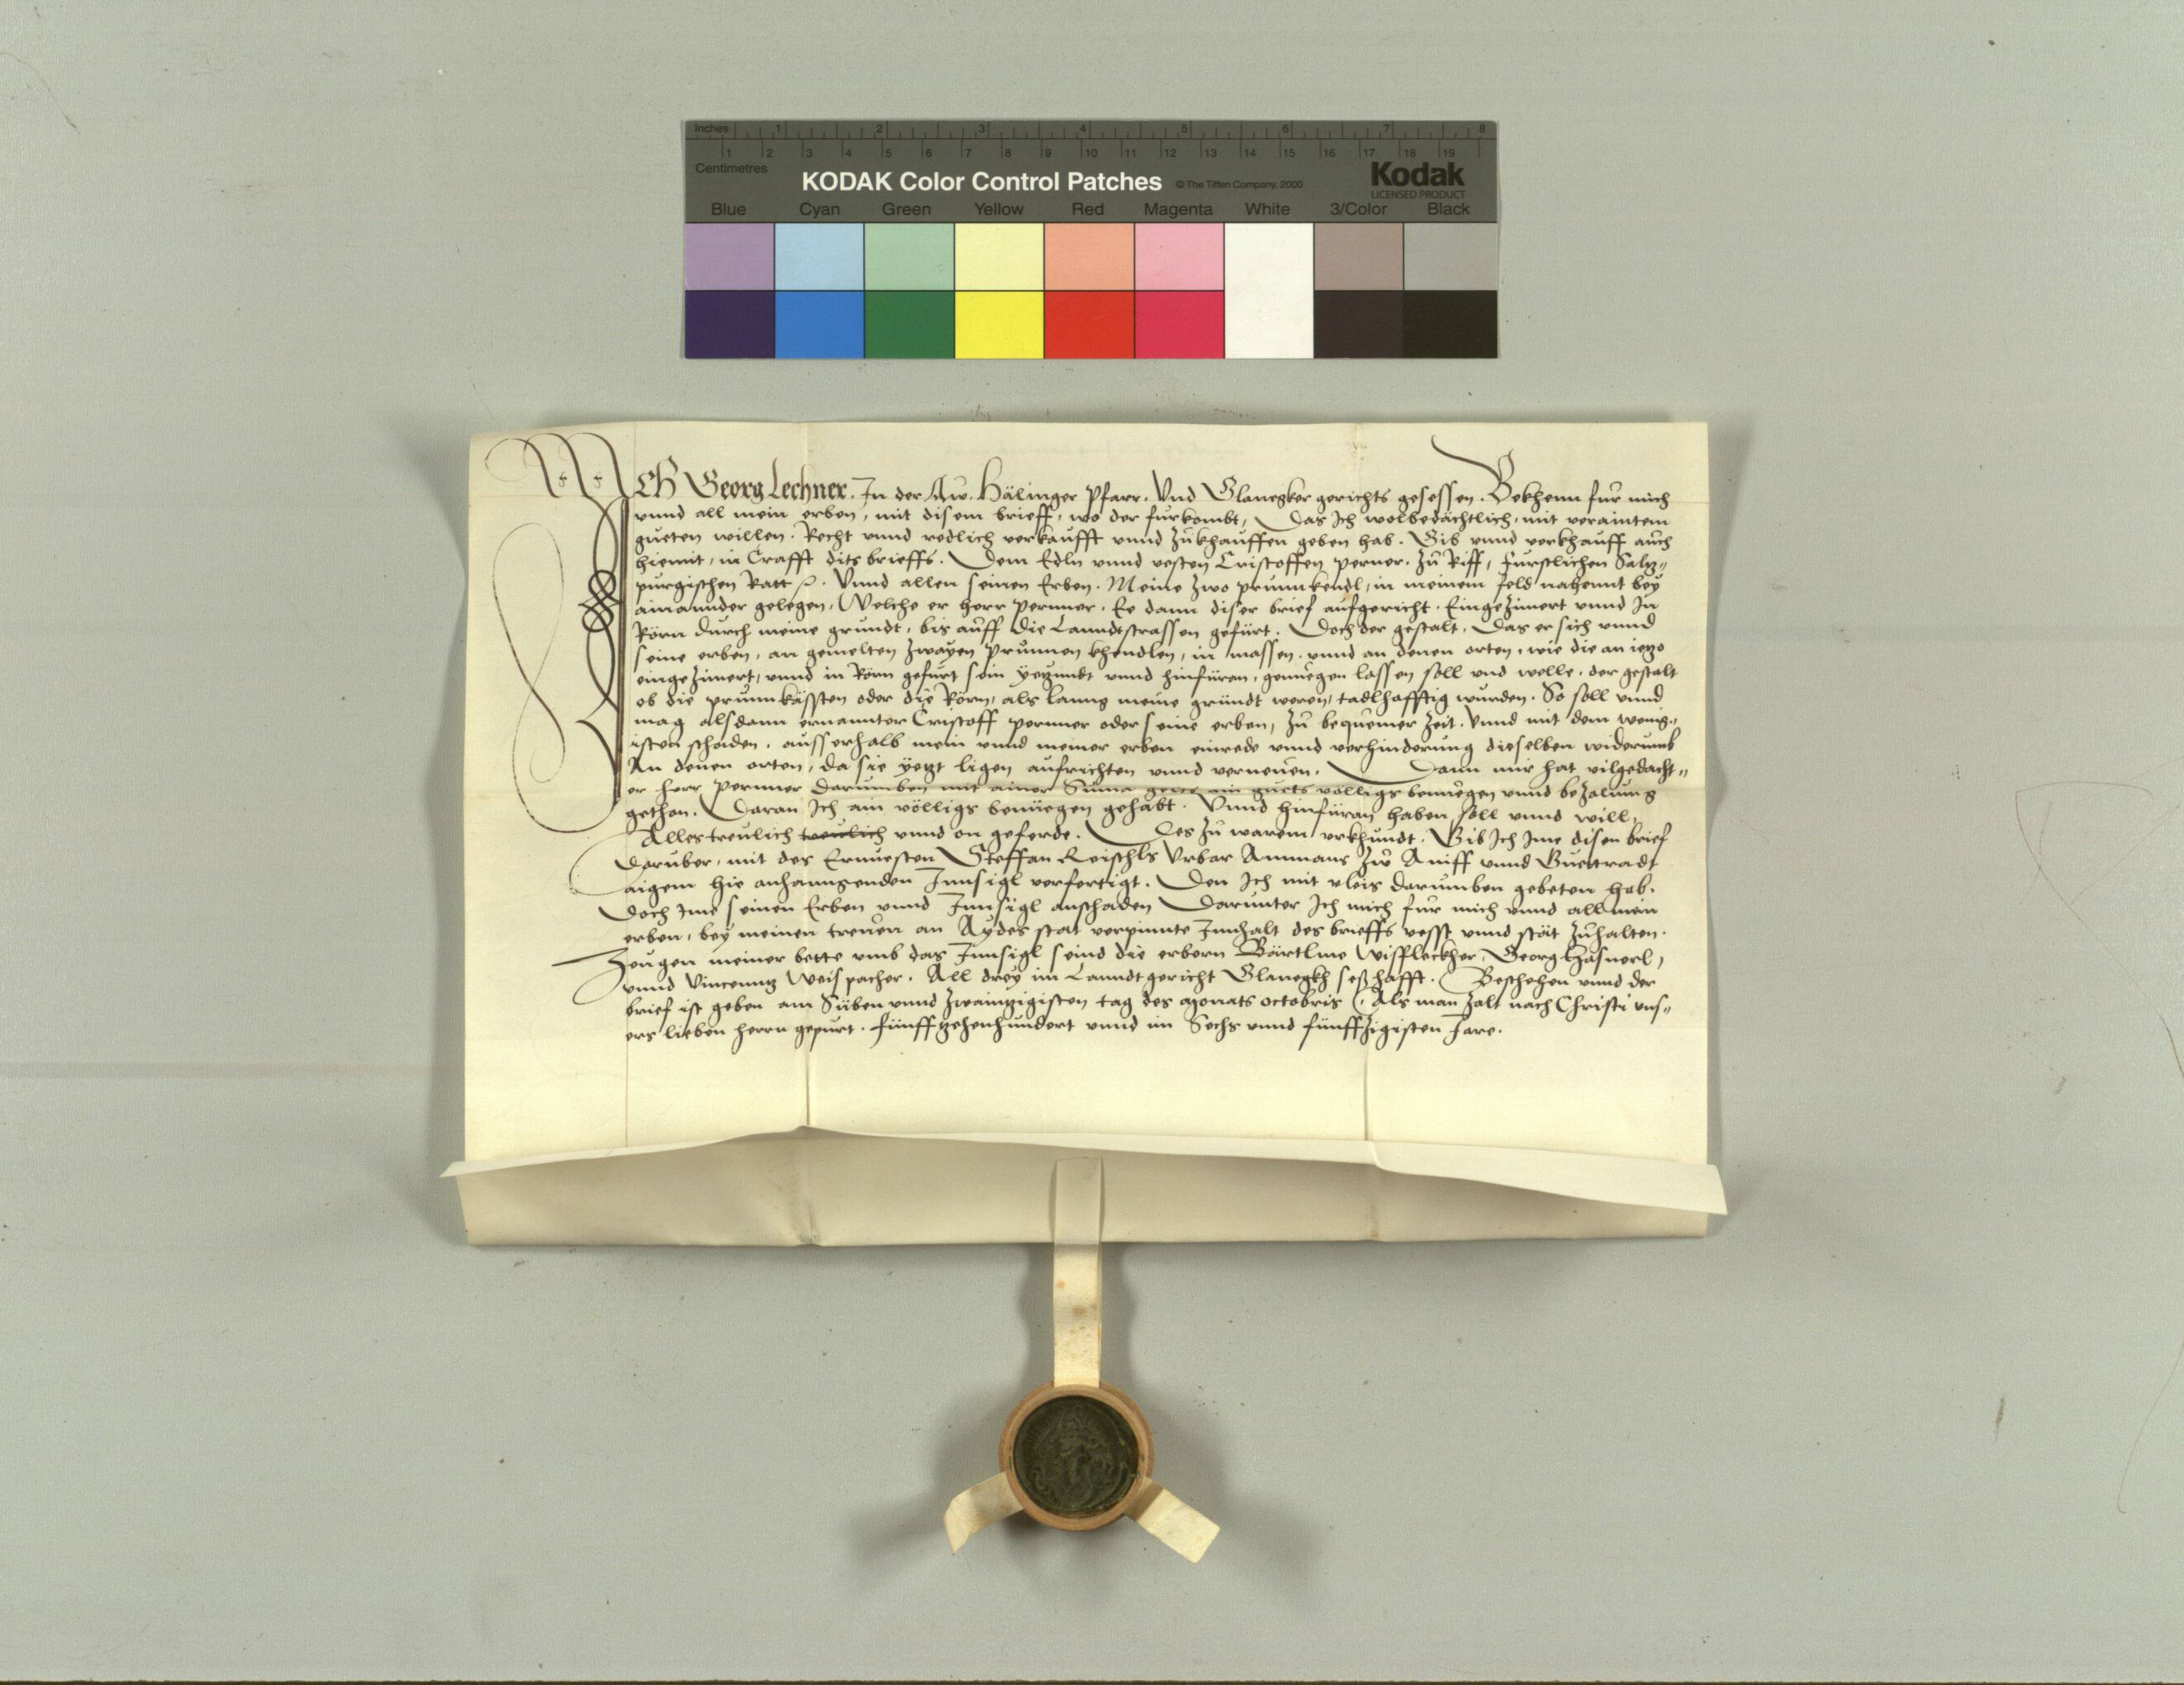 Inches 1 2 3 4 5 6 7 8
1 2 3 4 5 6 7 8 9 10 11 12 13 14 15 16 17 18 19
Centimetres
KODAK Color Control Patches © The Tiffen Company, 2000 Kodak
LICENSED PRODUCT
Blue Cyan Green Yellow Red Magenta White 3/Color Black
ICh Georg Lechner. In der Hälinger Pfarr. Vnd Glanegker gerichts gesessen. Bekhenn fur mich
vnnd all mein erben, mit disem brieff, wo der furkombt, Das Ich wolbedächtlich, mit veraintem
gueten willen. Recht vnnd redlich verkaufft vnnd zukhauffen geben hab. Gib vnnd verkhauff auch
hiemit, in Crafft dits brieffs. Dem Edln vnnd vesten Cristoffen perner. zu Riff, furstlichen Saltz„
purgischen Ratt. Vnnd allen seinen Erben. Meine zwo prunnkendl, in meinem feld nahennt bey
ainannder gelegen, Welche er herr pernner. Ee dann diser brief aufgericht. Eingezimert vnnd In
Rörn durch meine grundt, bis auff die Lanndtstrassen gefürt. Doch der gestalt, Das er sich vnnd
seine erben, an gemelten zwayen prunnen khendlen, in massen. vnnd an denen orten, wie die an ietzo
eingezimert, vnnd in Rörn gefurt sein yetzundt vnnd hinfüren, genüegen lassen soll vnd welle. der gestalt
ob die prunnkässten oder die Rörn, als lanng meine grundt weren, tadlhafftig wurden. So soll vnnd
mag alsdann ernannter Cristoff pernner oder seine erben, zu bequemer zeit. Vnnd mit dem wenig„
isten schaden. ausserhalb mein vnnd meiner erben einrede vnnd verhinderung dieselben widerumb
An denen orten, da sie yetzt ligen aufrichten vnnd verneuen. Dann mir hat vilgedacht„
er herr pernner darumben mit ainer Suma gelts ain guets völligs benuegen vnnd bezalung
gethon. Daran Ich ain völligs benüegen gehabt. Vnnd hinfüran haben soll vnnd will,
Alles treulich treulich vnnd on geferde. Des zu warem vrkhundt. Gib Ich Ime disen brief
daruber, mit des Ernuesten Steffan Reischls Vrbar Ammans zw Aniff vnnd Guettradt
aigem hie anhanngenden Innsigl verfertigt. Den Ich mit vleis darumben gebeten hab.
Doch Ime seinen Erben vnnd Innsigl anschaden Darunter Ich mich fur mich vnnd all mein
erben, bey meinen treuen an Aydes stat verpinnte Innhalt des brieffs vesst vnnd stät zuhalten.
Zeugen meiner bette vmb das Innsigl seind die erbern Bärtlme Wisfleckher, Georg Hasnerl,
vnnd Vincenntz Weispacher. All drey im Lanndtgericht Glanegkh seßhafft. Beschehen vnnd der
brief ist geben am Siben vnnd zwaintzigisten tag des monats octobris. Als man zalt nach Christi vns„
ers lieben herrn gepurt. funfftzehenhundert vnnd im Sechs vnnd funffzigisten Jare.